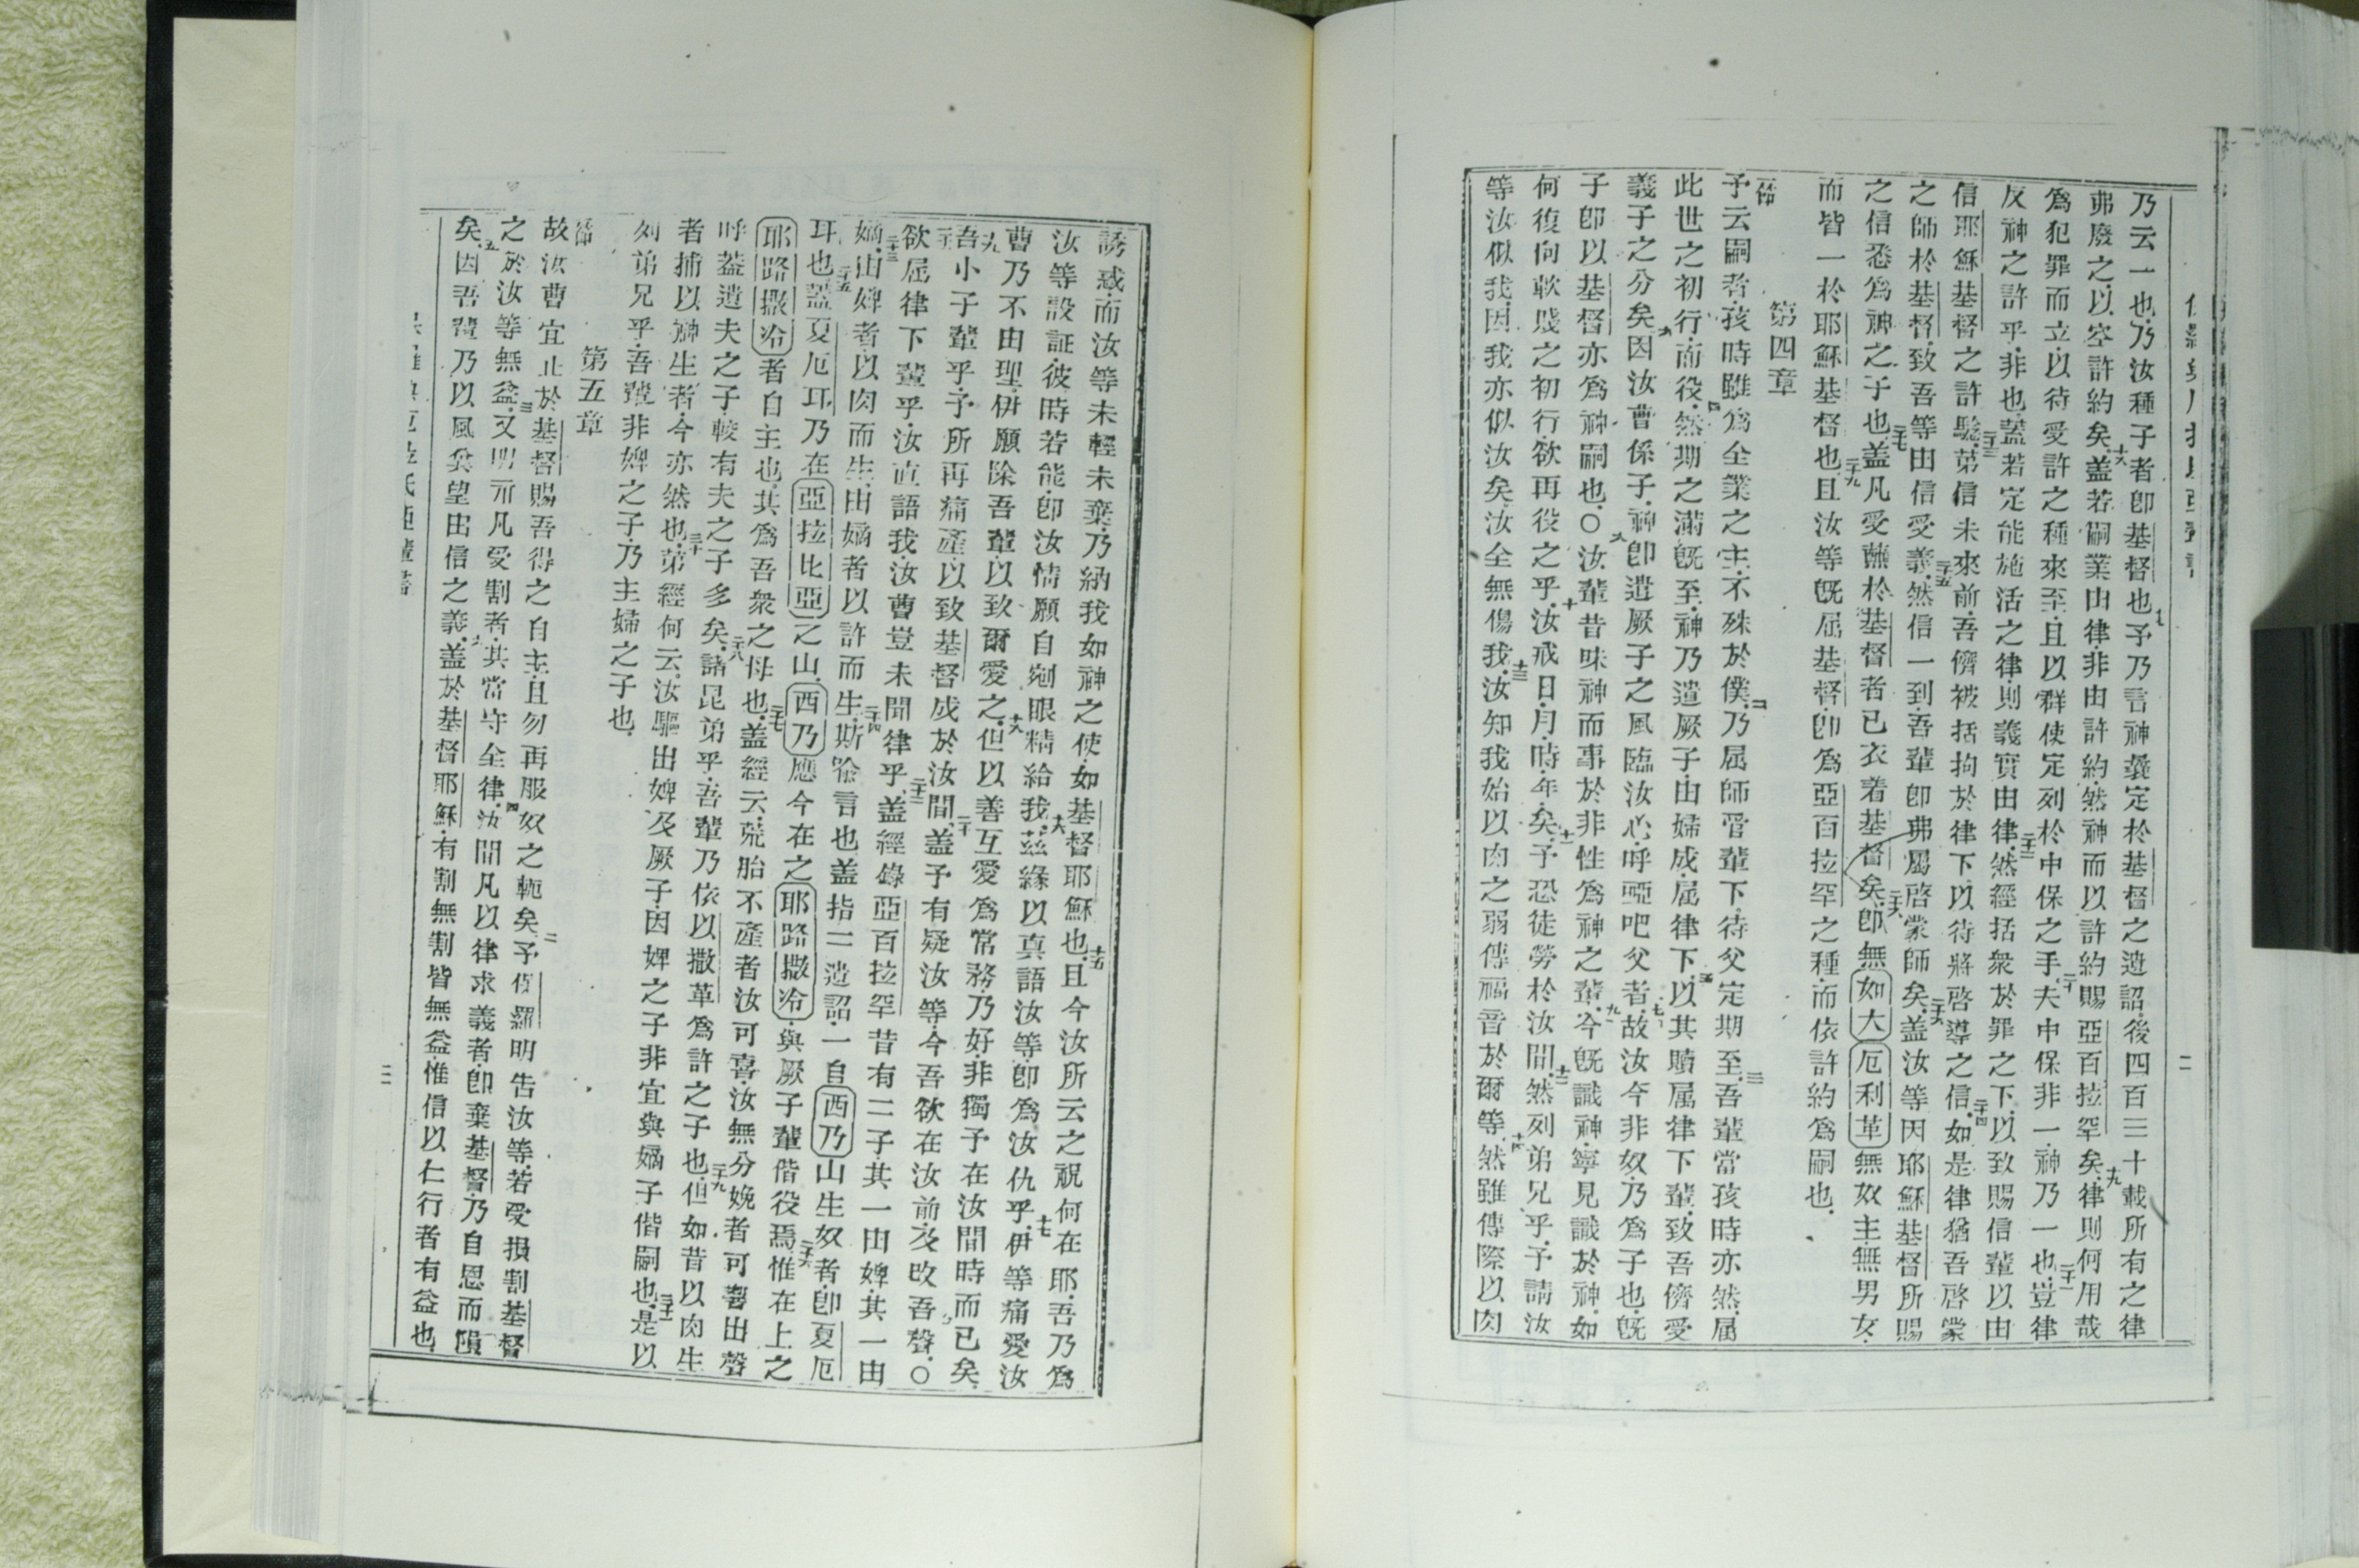 乃云一也乃汝種子者卽基督也七予乃言神曩定於基督之遺詔後四百三十載所有之律
弗廢之以空許約矣十八盖若嗣業由律非由許約然神而以許約賜亞百拉罕矣十九律則何用哉
爲犯罪而立以待受許之種來至且以群使定列於中保之手二十夫中保非一神乃一也二十一豈律
反神之許乎非也蓋若定能施活之律則義實由律二十二然經括衆於罪之下以致賜信輩以由
信耶穌基督之許驗二十三苐信未來前吾儕被括拘於律下以待將啓導之信二十四如是律猶吾啓蒙
之師於基督致吾等由信受義二十五然信一到吾輩卽弗屬啓蒙師矣二十六盖汝等因耶穌基督所賜
之信悉爲神之子也二十七盖凡受蘸於基督者已衣着基督矣二十八卽無如大厄利革無奴主無男女
而皆一於耶穌基督也二十九且汝等旣屈基督卽爲亞百拉罕之種而依許約爲嗣也
第四章
一節
予云嗣者孩時雖爲全業之主不殊於僕二乃屬師管輩下待父定期至三吾輩當孩時亦然屬
此世之初行而役四然期之滿旣至神乃遣厥子由婦成屬律下五以其贖屬律下輩致吾儕受
義子之分矣六因汝曹係子神卽遣厥子之風臨汝心呼啞吧父者七故汝今非奴乃爲子也旣
子卽以基督亦爲神嗣也〇八汝輩昔昧神而事於非性爲神之輩九今旣識神寧見識於神如
何復向軟賤之初行欲再役之乎十汝戒日月時年矣十一予恐徒勞於汝間十二然列弟兄乎予請汝
等汝似我因我亦似汝矣汝全無傷我十三汝知我始以肉之弱傳福音於爾等十四然雖傳際以肉
誘惑而汝等未輕未棄乃納我如神之使如基督耶穌也十五且今汝所云之祝何在耶吾乃爲
汝等設証彼時若能卽汝情願自剜眼精給我十六茲緣以真語汝等卽爲汝仇乎十七伊等痛愛汝
曹乃不由理伊願除吾輩以致爾愛之十八但以善互愛爲常務乃好非獨予在汝間時而已矣
十九吾小子輩乎予所再痛產以致基督成於汝間二十盖予有疑汝等今吾欲在汝前及改吾聲〇
二十一欲屈律下輩乎汝直語我汝曹豈未聞律乎二十二盖經錄亞百拉罕昔有二子其一由婢其一由
嫡二十三由婢者以肉而生由嫡者以許而生二十四斯喻言也盖指二遺詔一自西乃山生奴者卽夏厄
耳也二十五蓋夏厄耳乃在亞拉比亞之山西乃應今在之耶路撒冷與厥子輩偕役焉二十六惟在上之
耶路撒冷者自主也其爲吾衆之母也二十七盖經云荒胎不產者汝可喜汝無分娩者可讙出聲
呼盖遺夫之子較有夫之子多矣二十八諸昆弟乎吾輩乃依以撒革爲許之子也二十九但如昔以肉生
者捕以神生者今亦然也三十苐經何云汝驅出婢及厥子因婢之子非宜與嫡子偕嗣也三十一是以
列弟兄乎吾輩非婢之子乃主婦之子也
第五章
一節
故汝曹宜止於基督賜吾得之自主且勿再服奴之軛矣二予保羅明告汝等若受損割基督
之於汝等無益三又明示凡受割者其當守全律四汝間凡以律求義者卽棄基督乃自恩而隕
矣五因吾輩乃以風矣望由信之義六盖於基督耶穌有割無割皆無益惟信以仁行者有益也